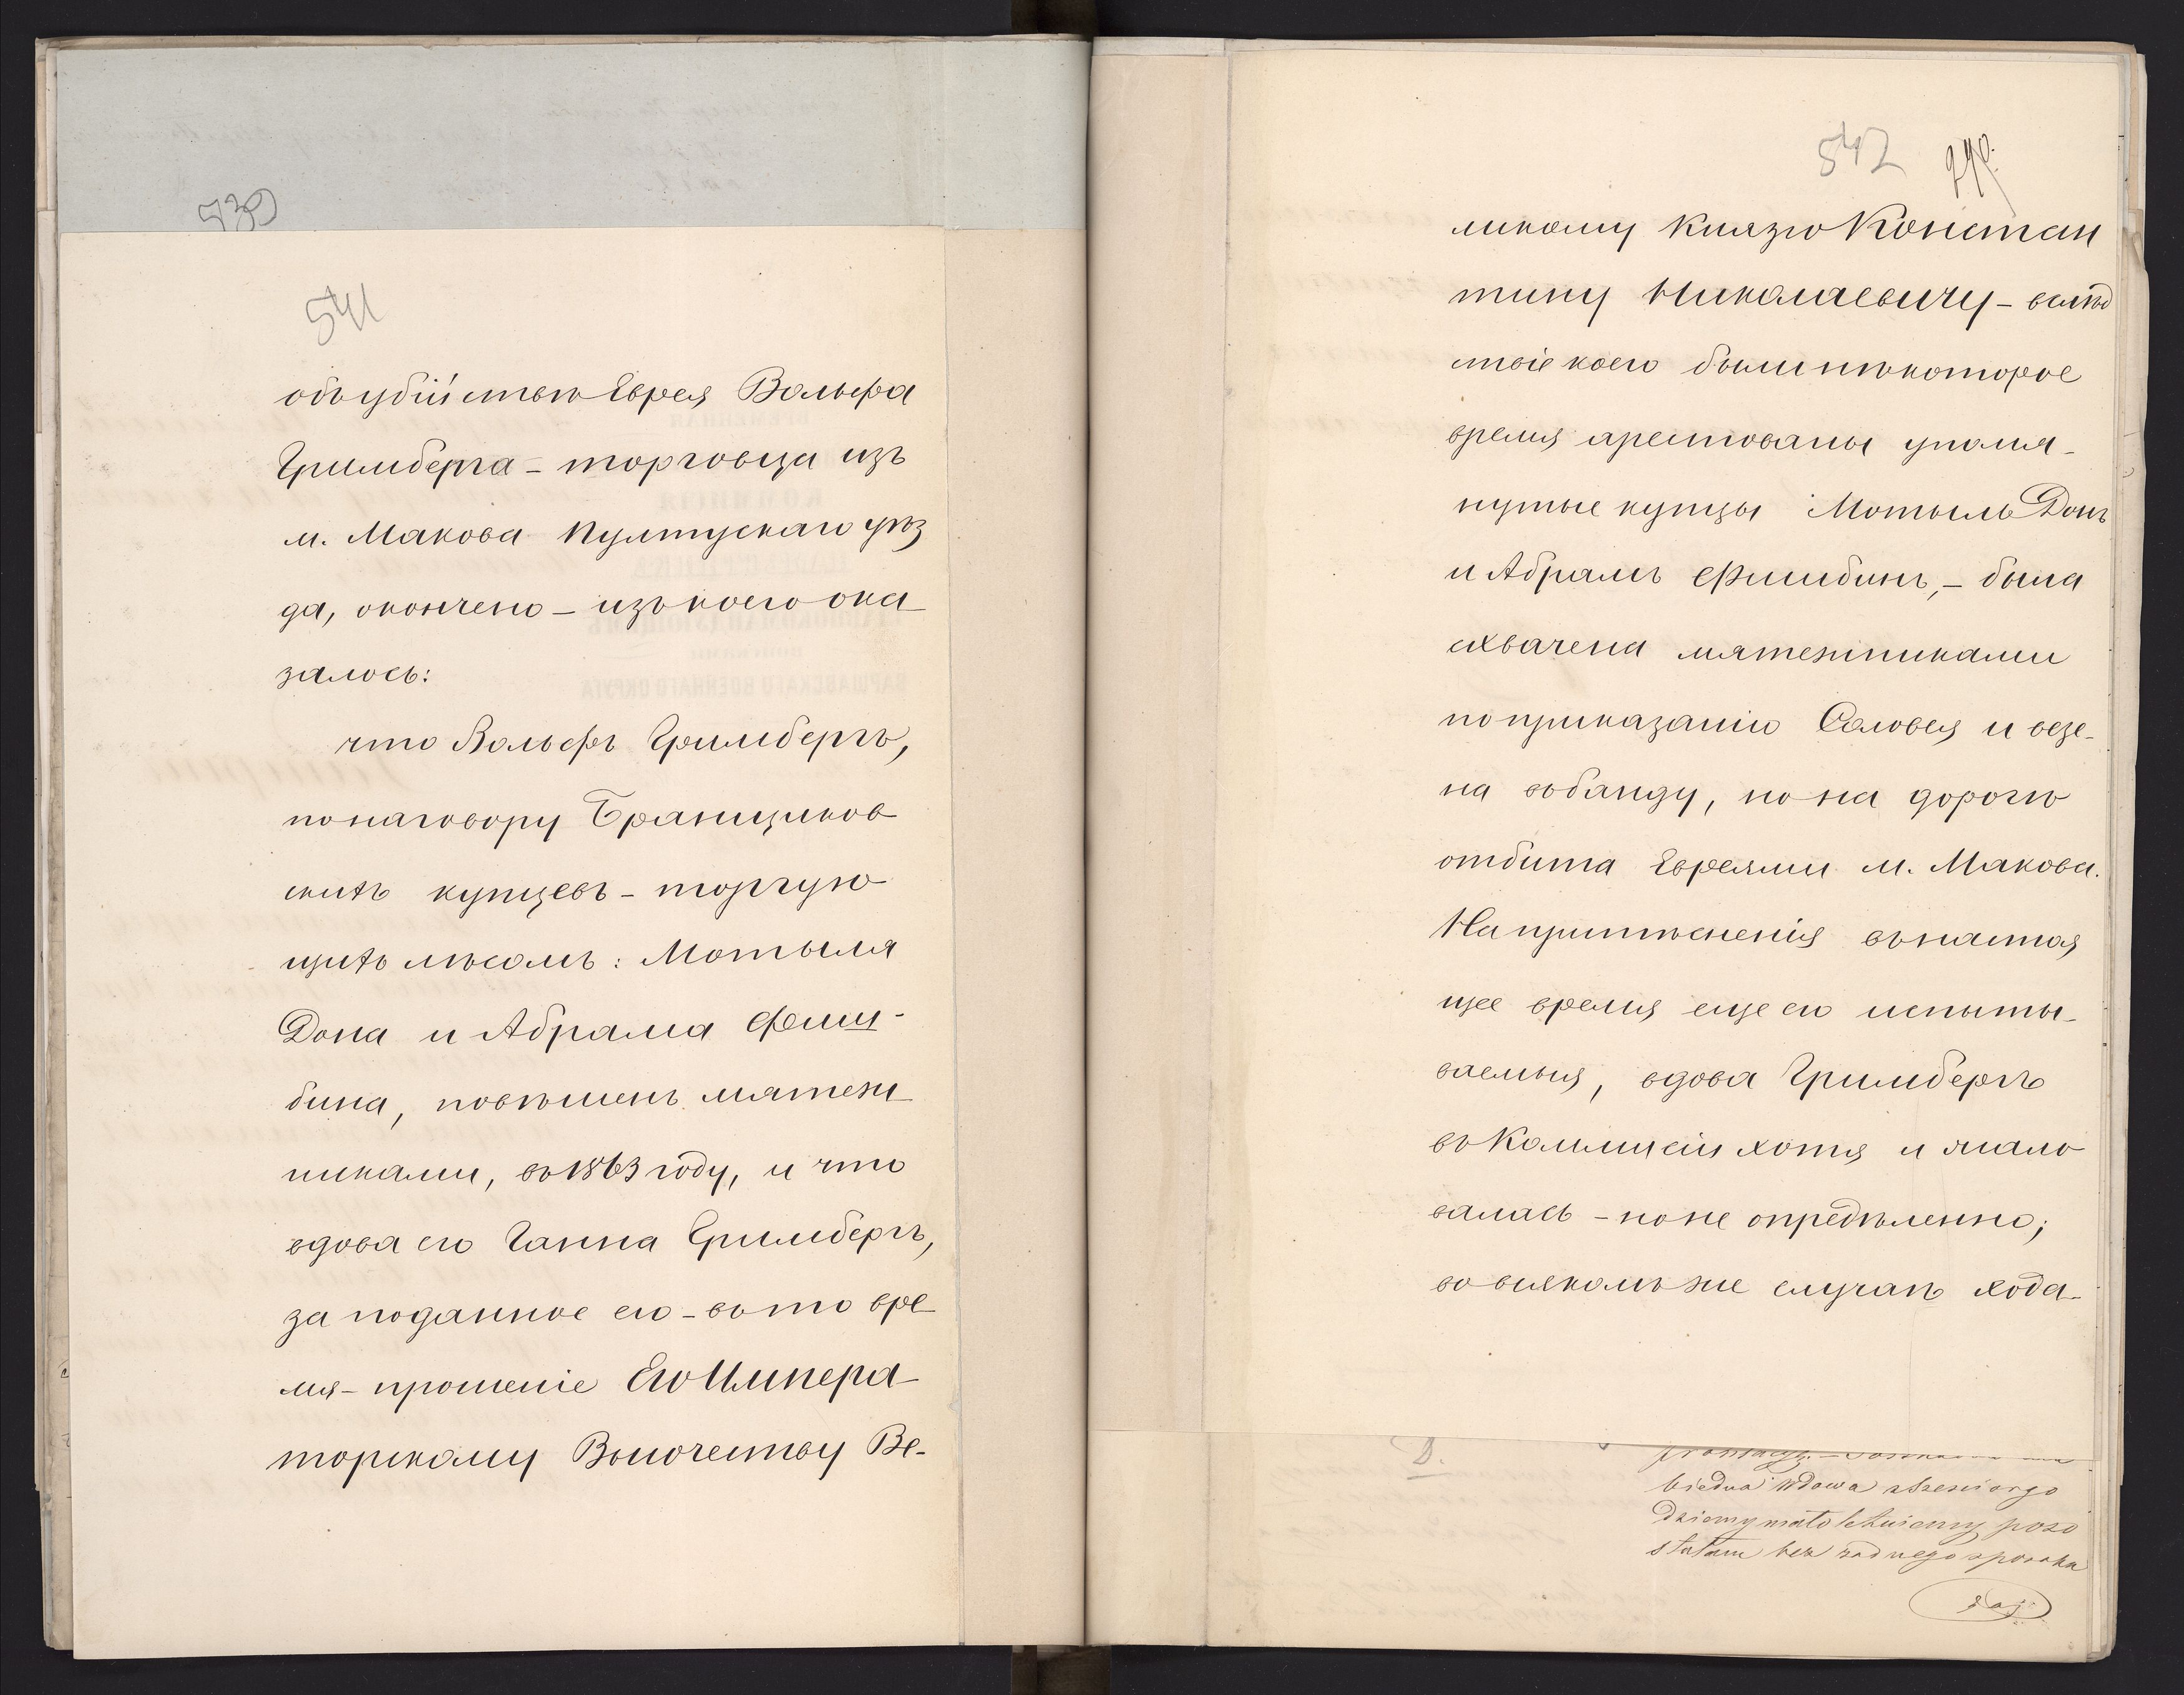 730
541
объ убійствѣ Еврея Вольфа
Гримберга – торговца изъ
м. Макова Пултускаго уѣз
да, окончено – изъ коего ока
залось:
что Вольфъ Гримбергъ,
по наговору Бранщиков
скихъ купцевъ – торгую
щихъ лѣсомъ: Мотыля
Дона и Абрама Фиш-
бина, повѣшенъ мятеж
никами, въ 1863 году, и что
вдова его Ганна Гримбергъ,
за поданное ею – въ то вре
мя – прошеніе Его Импера
торскому Высочеству Ве-
542
ликому Князю Констан
тину Николаевичу – вслѣд
ствіе коего были нѣкоторое
время арестованы упомя-
нутые купцы Мотыль Донъ
и Абрамъ Фишбинъ, – была
схвачена мятежниками
по приказанію Соловья и везе-
на въ банду, но на дорогѣ
отбита Евреями м. Макова.
На притѣсненія въ настоя
щее время еще ею испыты-
ваемыя, вдова Гримбергъ
въ Коммисіи хотя и жало
валась – но не опредѣленно;
во всякомъ же случаѣ хода-
D.
biedna wdowa z
pozo
stałam bez żadnego sposobu